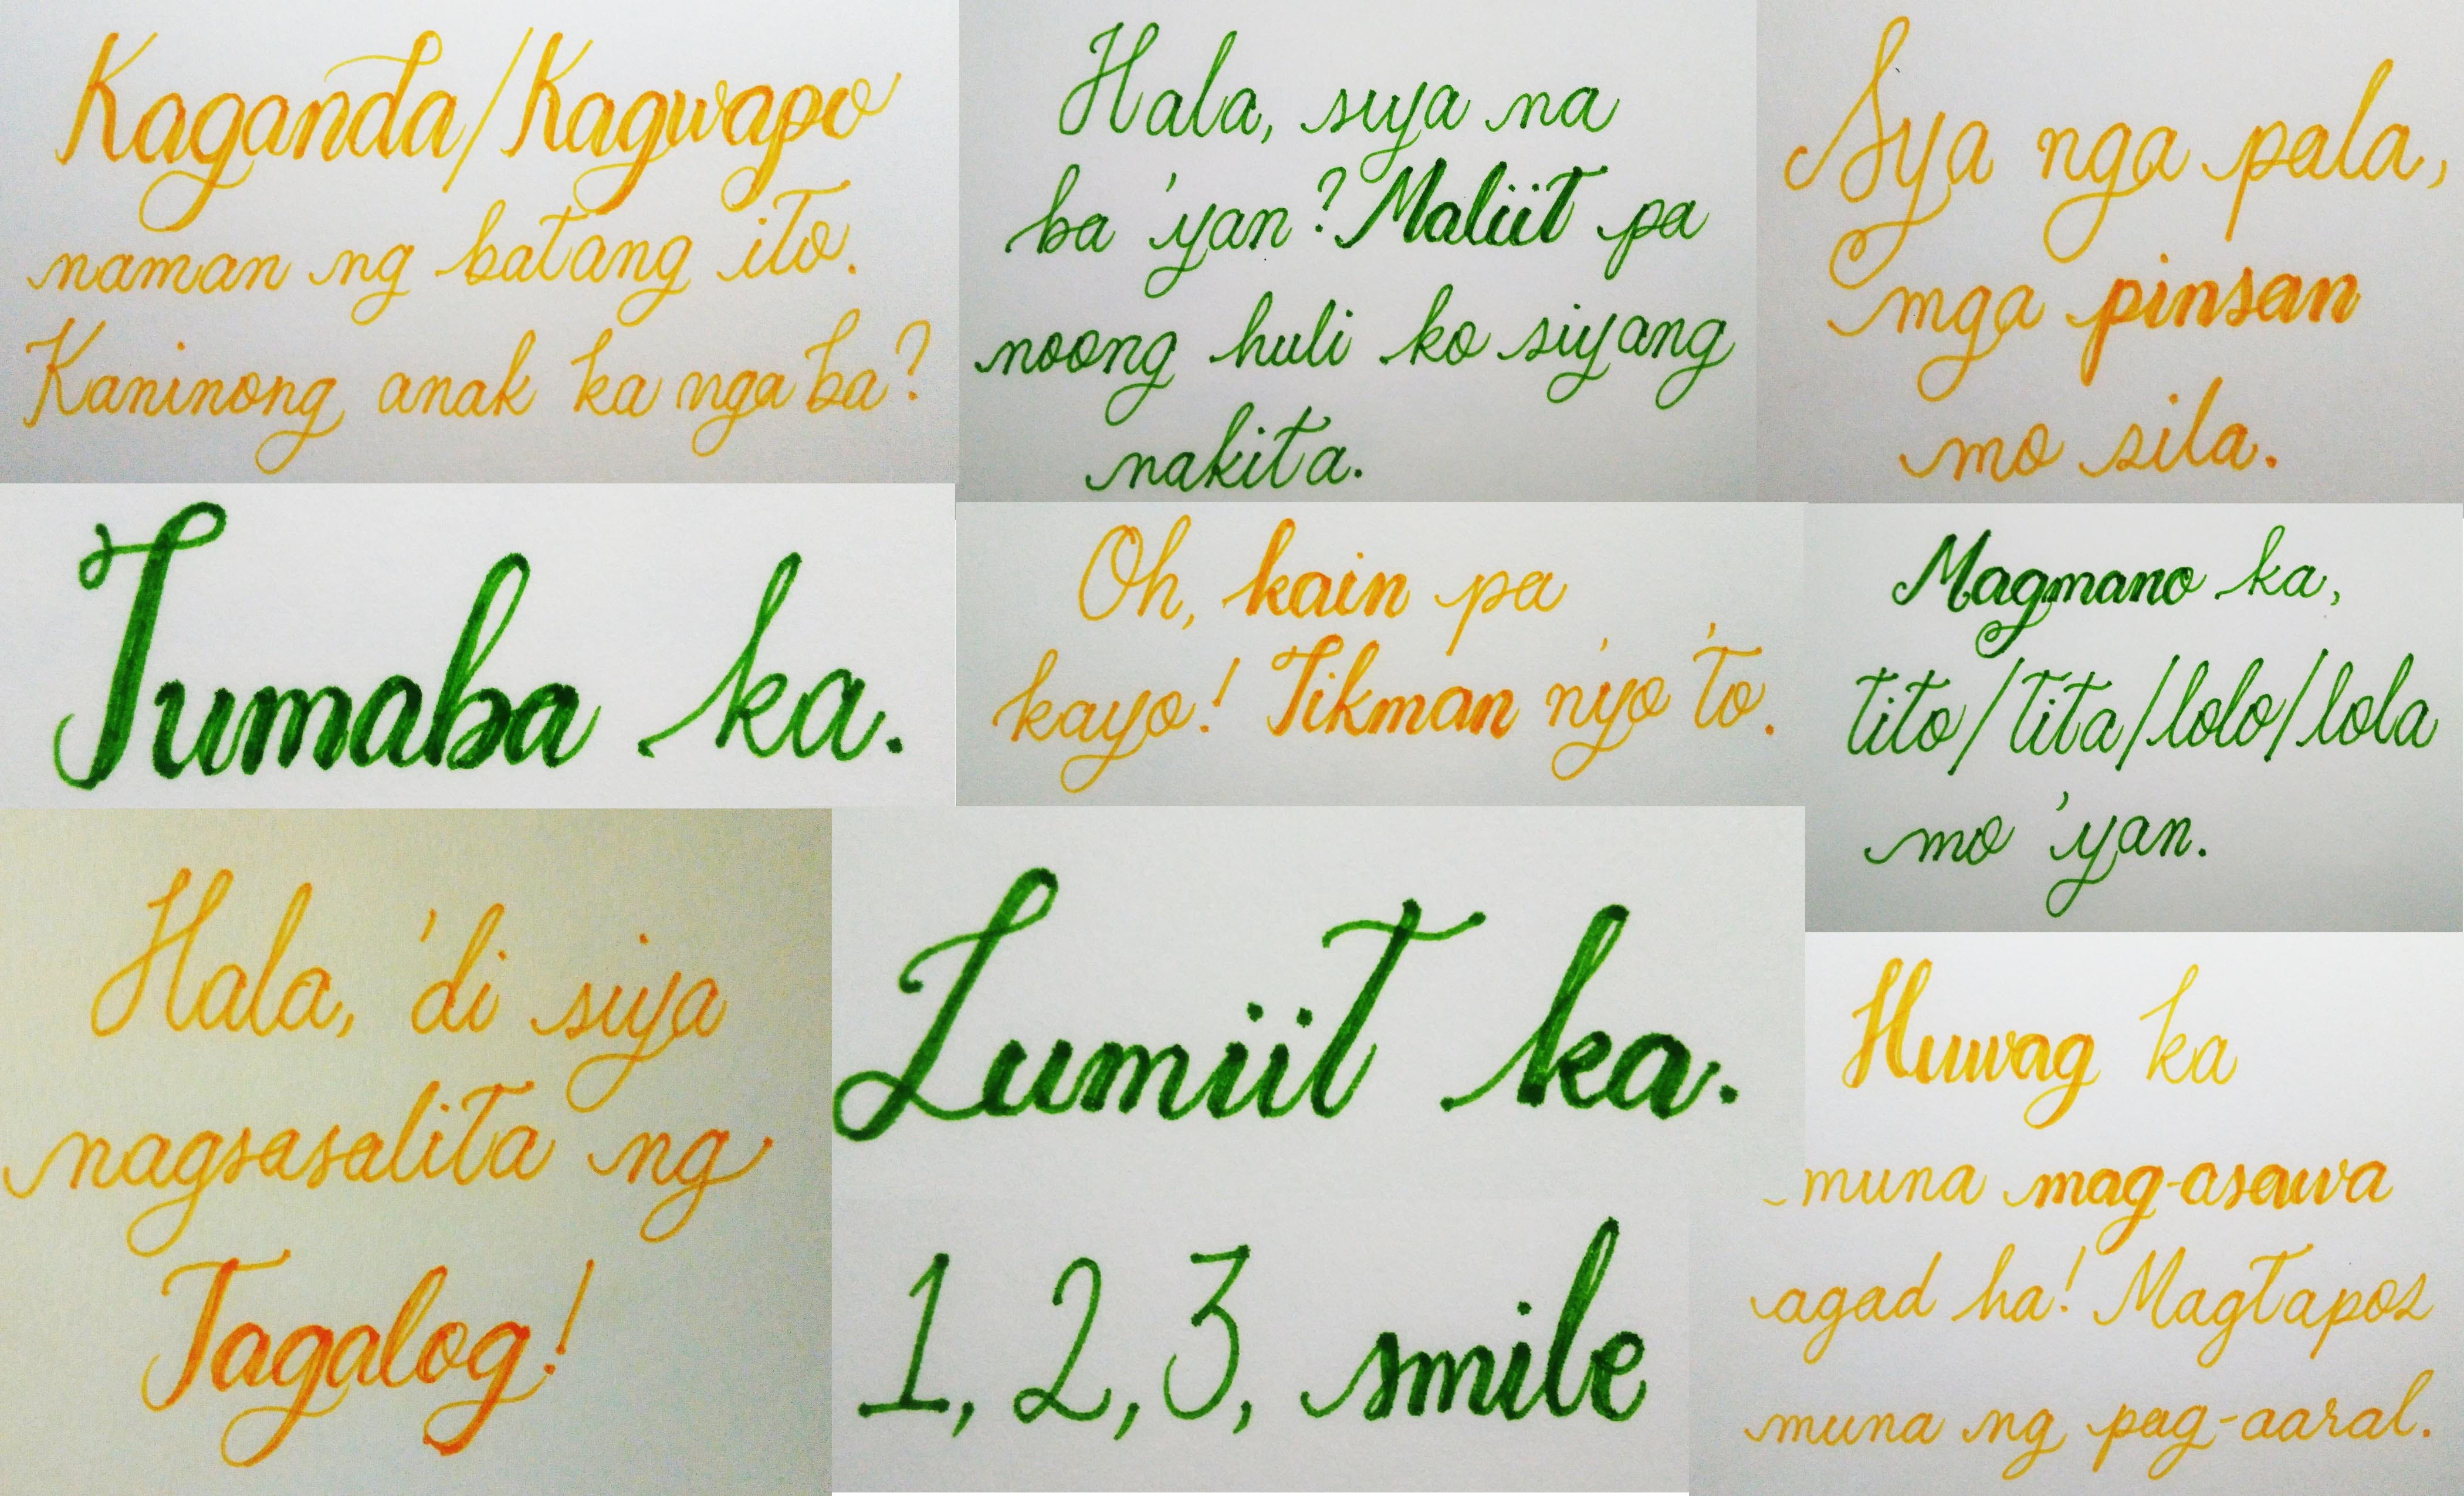 Kaganda/Kagwapo
naman ng batang ito.
Kaninong anak ka nga ba?
Hala, siya na
ba 'yan? Maliit pa
noong huli ko siyang
nakita.
Sya nga pala,
mga pinsan
mo sila.
Tumaba ka.
Oh, kain pa
kayo! Tikman n'yo 'to.
Magmano ka,
tito/tita/lolo/lola
mo 'yan.
Hala, 'di siya
nagsasalita ng
Tagalog!
Lumiit ka.
1, 2, 3, smile
Huwag ka
muna mag-asawa
agad ha! Magtapos
muna ng pag-aaral.